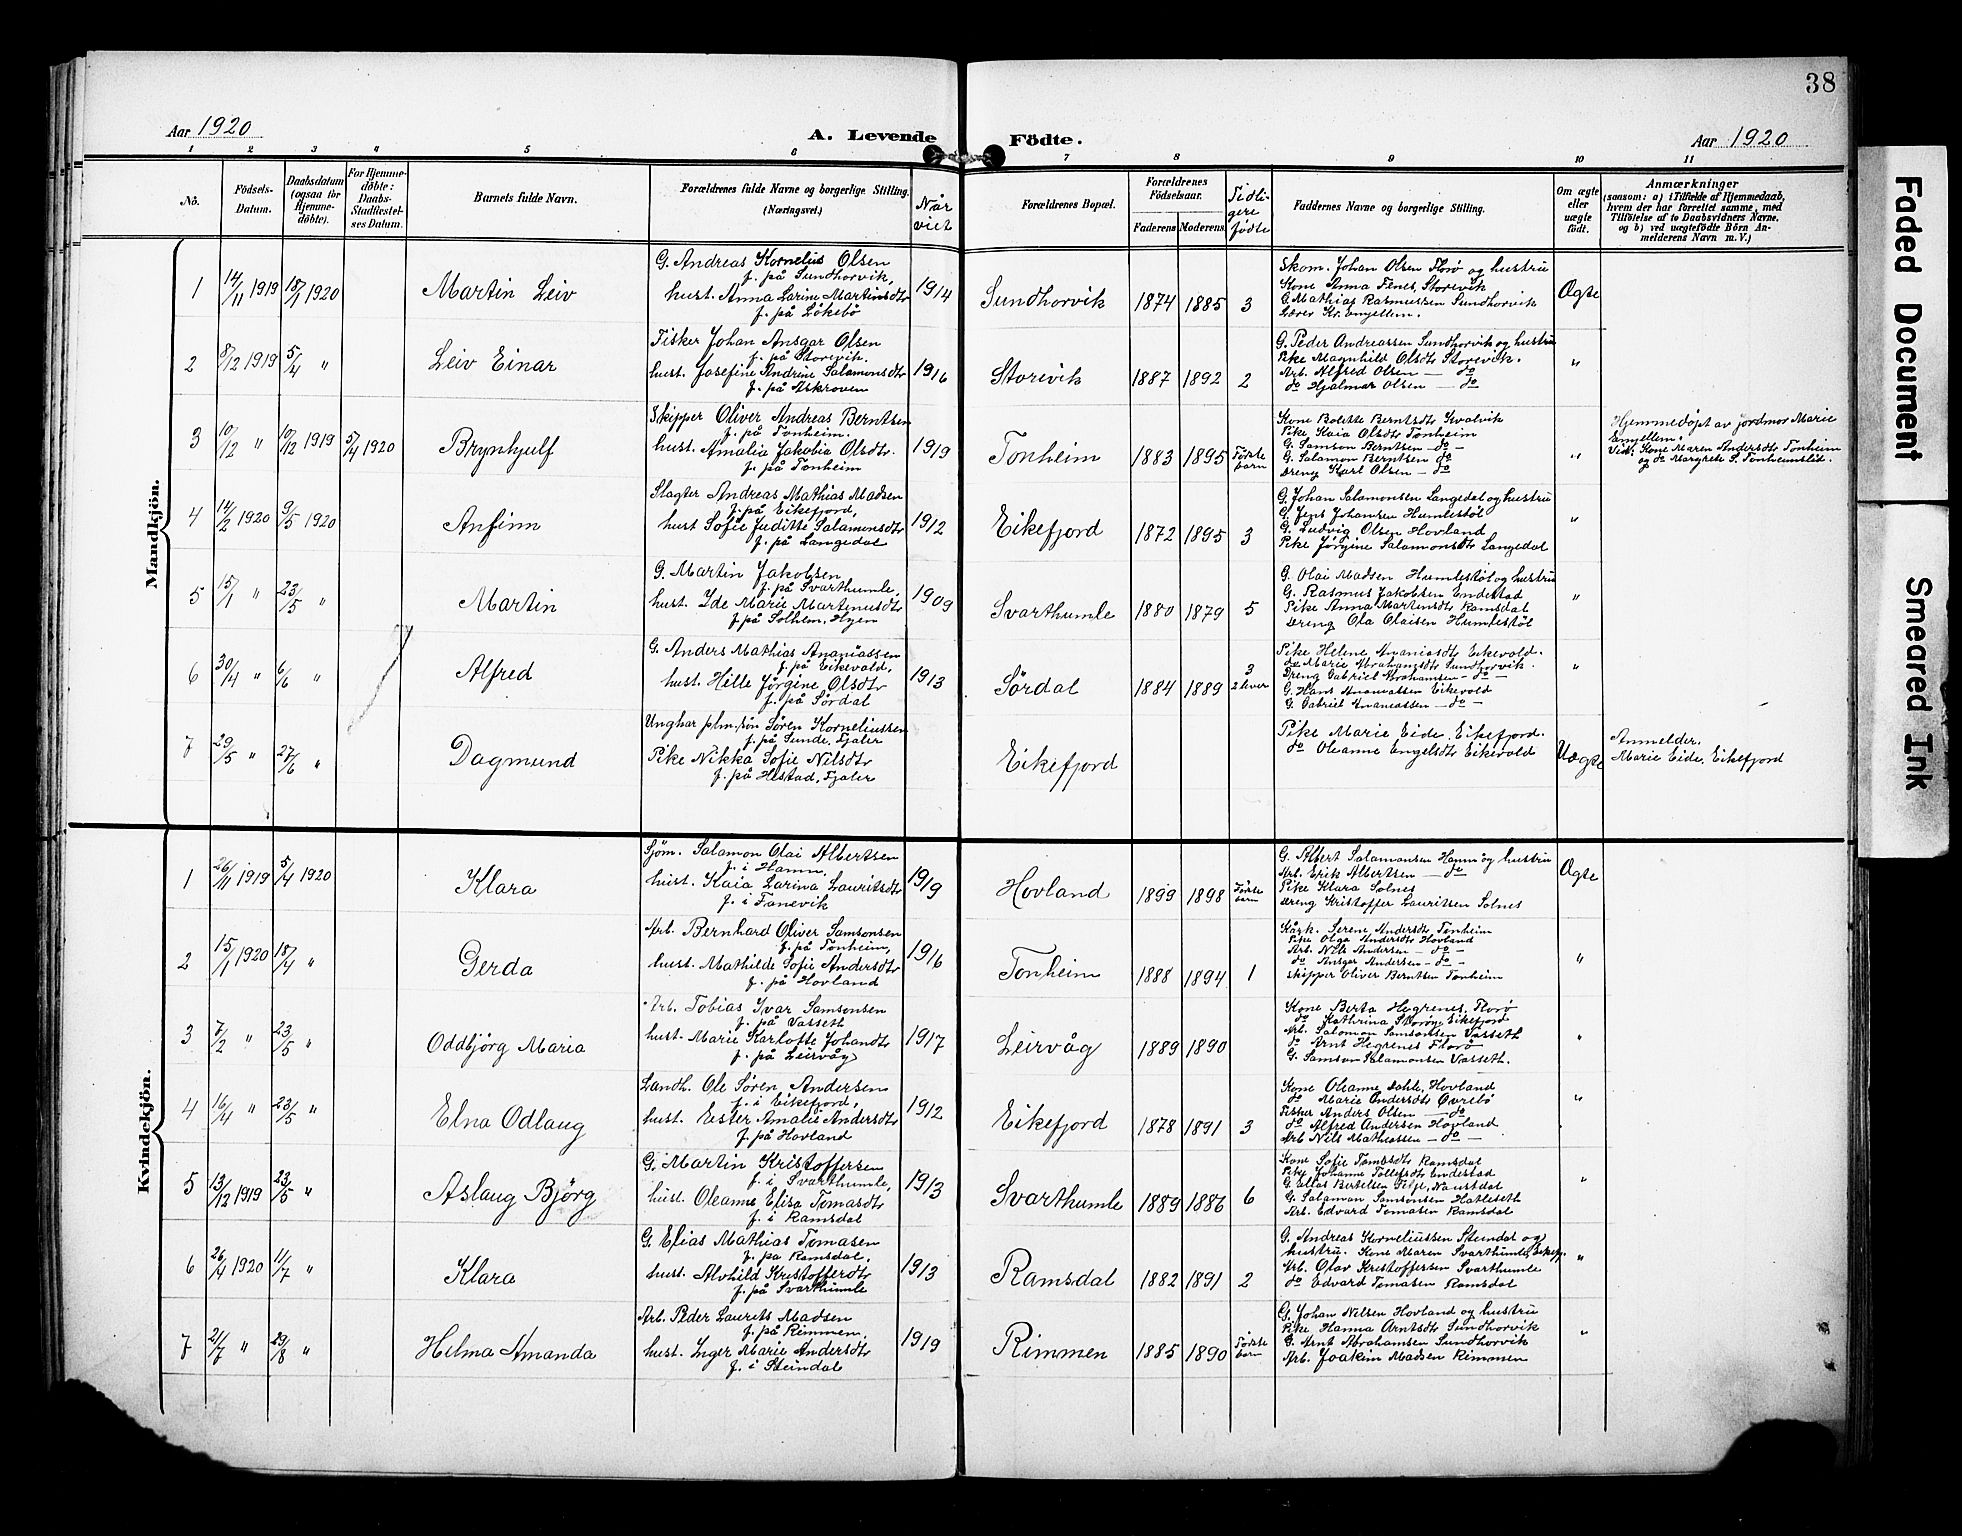 38
Aar 1920
A. Levende Födte.
Aar 1920
1 2 3 4 5 6 7 8 9 10 11
No.
Födsels-Datum.
Daabsdatum (ogsaa for Hjemmedöbte).
For Hjemmedöbte: Daabs-Stadfæstelses Datum.
Barnets fulde Navn.
Forældrenes fulde Navne og borgerlige Stilling. (Næringsvei.)
Når viet
Forældrenes Bopæl.
Forældrenes Födselsaar.
Faderens Moderens
Tidligere fødte
Faddernes Navne og borgerlige Stilling.
Om ægte eller uægte födt.
Anmærkninger
(saasom: a) i Tilfælde af Hjemmedaab,
hvem der har forrettet samme, med
Tilföielse af to Daabsvidners Navne,
og b) ved uægtefödte Börn Anmelderens Navn m. V.)
Mandkjön.
1 14/11 1919 18/1 1920 Martin Leiv
G. Andreas Kornelius Olsen
f. på Sundhorvik,
hust. Anna Larine Martinsdtr
f. på Løkebø
1914 Sundhorvik 1874 1885 3
Skom. Johan Olsen Florø og hustru
Kone Anna Fenes, Storevik
G. Mathias Rasmussen Sundhorvik
Lærer Kr. Engellem.
Ægte
2 8/12 1919 5/4 " Leiv Einar
Fisker Johan Ansgar Olsen
f. på Storevik.
hust. Josefine Andrine Salamonsdtr
f. på Askroven
1916 Storevik 1887 1892 2
G. Peder Andreassen Sundhorvik og hustru
Pike Magnhild Olsdtr Storevik.
Arb. Alfred Olsen — do
do Hjalmar Olsen — do
"
3 10/12 " 10/12 1919 5/4 1920 Brynhjulf
Skipper Oliver Andreas Berntsen
f. på Tonheim.
hust. Amalia Jakobia Olsdtr.
f. på Tonheim
1919 Tonheim 1883 1895 Første barn
Kone Bolette Berntsdtr Kvalvik
Pike Kaia Olsdtr Tonheim
G. Samson Berntsen do —
G. Salamon Berntsen do
Dreng Karl Olsen — do
"
Hjemmedöpt av jordmor Marie
Engellem.
Vid: Kone Maren Andersdtr Tonheim
og do Margrete S. Tonheimslid.
4 14/2 1920 9/5 1920 Anfinn
Slagter Andreas Mathias Madsen
f. på Eikefjord,
hust Sofie Juditte Salamonsdtr
f. på Langedal
1912 Eikefjord 1872 1895 3
G. Johan Salamonsen Langedal og hustru
G. Jens Johansen Humlestöl
G. Ludvig Olsen Hovland
Pike Jörgine Salamonsdtr Langedal
"
5 15/1 " 23/5 " Martin
G. Martin Jakobsen
f. på Svarthumle,
hust. Ide Marie Martinusdtr
f. på Solheim, Hyen
1909 Svarthumle 1880 1879 5
G. Olai Madsen Humlestöl og hustru
G. Rasmus Jakobsen Endestad
Pike Anna Martinsdtr Ramsdal
Dreng Ola Olaisen Humlestöl
"
6 30/4 " 6/6 " Alfred
G. Anders Mathias Ananiassen
f. på Eikevold,
hust. Hille Jørgine Olsdtr
f. på Sørdal
1913 Sørdal 1884 1889 3 2 lever
Pike Helene Ananiasdtr Eikevold.
do Marie Abrahamsdtr Sundhorvik.
Dreng Gabriel Abrahamsen — do —
G. Hans Ananiassen Eikevold
G. Gabriel Ananiassen — do —
"
7 29/5 " 27/6 " Dagmund
Ungkar plm. søn Søren Korneliussen
f. på Sunde, Fjaler
Pike Nikka Sofie Nilsdtr
f. på Hestad, Fjaler
Eikefjord
Pike Marie Eide, Eikefjord.
do Oleanne Engelsdtr Eikevold
Uægte
Anmelder.
Marie Eide, Eikefjord
Kvindekjön.
1 26/11 1919 5/4 1920 Klara
Sjöm. Salamon Olai Albertsen
f. i Hamn,
hust. Kaia Larina Lauritsdtr
f. i Fanevik
1919 Hovland 1899 1898 Første barn
G. Albert Salamonsen Hamn og hustru
Arb. Erik Albertsen — do
Pike Klara Solnes
Dreng Kristoffer Lauritsen Solnes
Ægte
2 15/1 1920 18/4 " Gerda
Arb. Bernhard Oliver Samsonsen
f. på Tonheim,
hust. Mathilde Sofie Andersdtr
f. på Hovland
1916 Tonheim 1888 1894 1
Kårk. Serene Andersdtr Tonheim
Pike Olga Andersdtr Hovland
Arb. Nils Andersen — do —
do Ansgar Andersen — do —
Skipper Oliver Berntsen Tonheim
"
3 7/2 " 23/5 " Oddbjörg Maria
Arb. Tobias Ivar Samsonsen
f. på Vasseth
hust. Marie Karlotte Johandtr
f. på Leirvåg
1917 Leirvåg 1889 1890
Kone Berta Hegrenes, Florø
do Kathrina Storøy, Eikefjord
Arb. Salamon Samsonsen Vasseth
do Arnt Hegrenes Florø
G. Samson Salamonsen Vasseth.
"
4 16/4 " 23/5 " Elna Odlaug
Landh. Ole Søren Andersen
f. i Eikefjord,
hust. Ester Amalie Andersdtr
f. på Hovland
1912 Eikefjord 1878 1891 3
Kone Oleanne Dahle, Hovland
do Marie Andersdtr Øvrebø
Fisker Anders Olsen — do
do Alfred Andersen Hovland
Arb Nils Matheassen — do —
"
5 13/12 1919 23/5 " Aslaug Bjørg
G. Martin Kristoffersen
f. i Svarthumle,
hust. Oleanne Elisa Tomasdtr
f. i Ramsdal
1913 Svarthumle 1889 1886 6
Kone Sofie Tomasdtr Ramsdal
Pike Johanne Tollefsdtr Endestad
G Elias Bertelsen Naustdal
G. Salamon Samsonsen Hatleseth
Arb. Edvard Tomasen Ramsdal
"
6 26/4 1920 11/7 " Klara
G. Elias Mathias Tomasen
f. på Ramsdal,
hust. Alvhild Kristofferdtr
f. på Svarthumle
1913 Ramsdal 1882 1891 2
G. Andreas Korneliussen Steindal og
hustru. Kone Maren Svarthumle, Eikefj.
Arb. Olav Kristoffersen Svarthumle
do Edvard Tomasen Ramsdal
"
7 21/7 " 29/8 " Helma Amanda
Arb. Peder Laurits Madsen
f. på Rimmen,
hust. Inger Marie Andersdtr
f. i Steindal
1919 Rimmen 1885 1890 Første barn
G. Johan Nilsen Hovland og hustru
Pike Hanna Arntsdtr Sundhorvik
G. Arnt Abrahamsen Sundhorvik
Arb. Joakim Madsen Rimmen
"
Faded Document
Smeared Ink